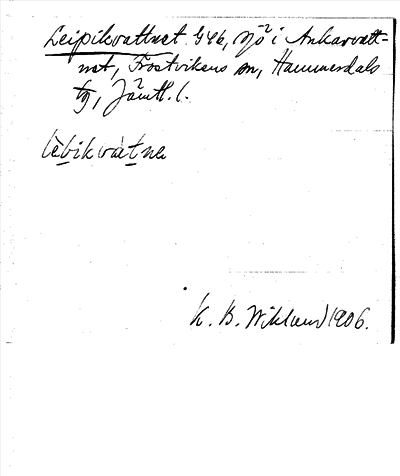 Leipikvattnet GEB, sjö i Ankarvatt-
net, Frostvikens sn, Hammerdals
tg, Jämtl. l.
lèbikvàtna
K. B. Wiklund 1906.